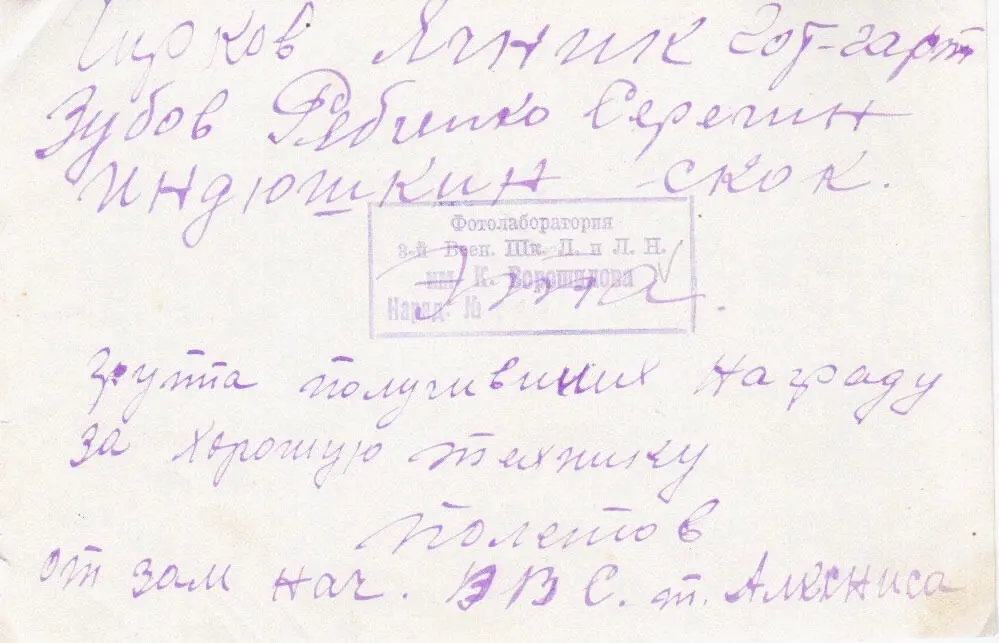 Чирков Ячник Гот-гарт
Зубов Рябченко Серегин
Индюшкин - скок.
Фотолаборатория
3-й Воен. Шк. Л. и Л. Н.
им. К. Ворошилова
Наряд. №
Эта
группа получивших награду
за хорошую технику
полетов
от зам нач. ВВС. т. Алксниса